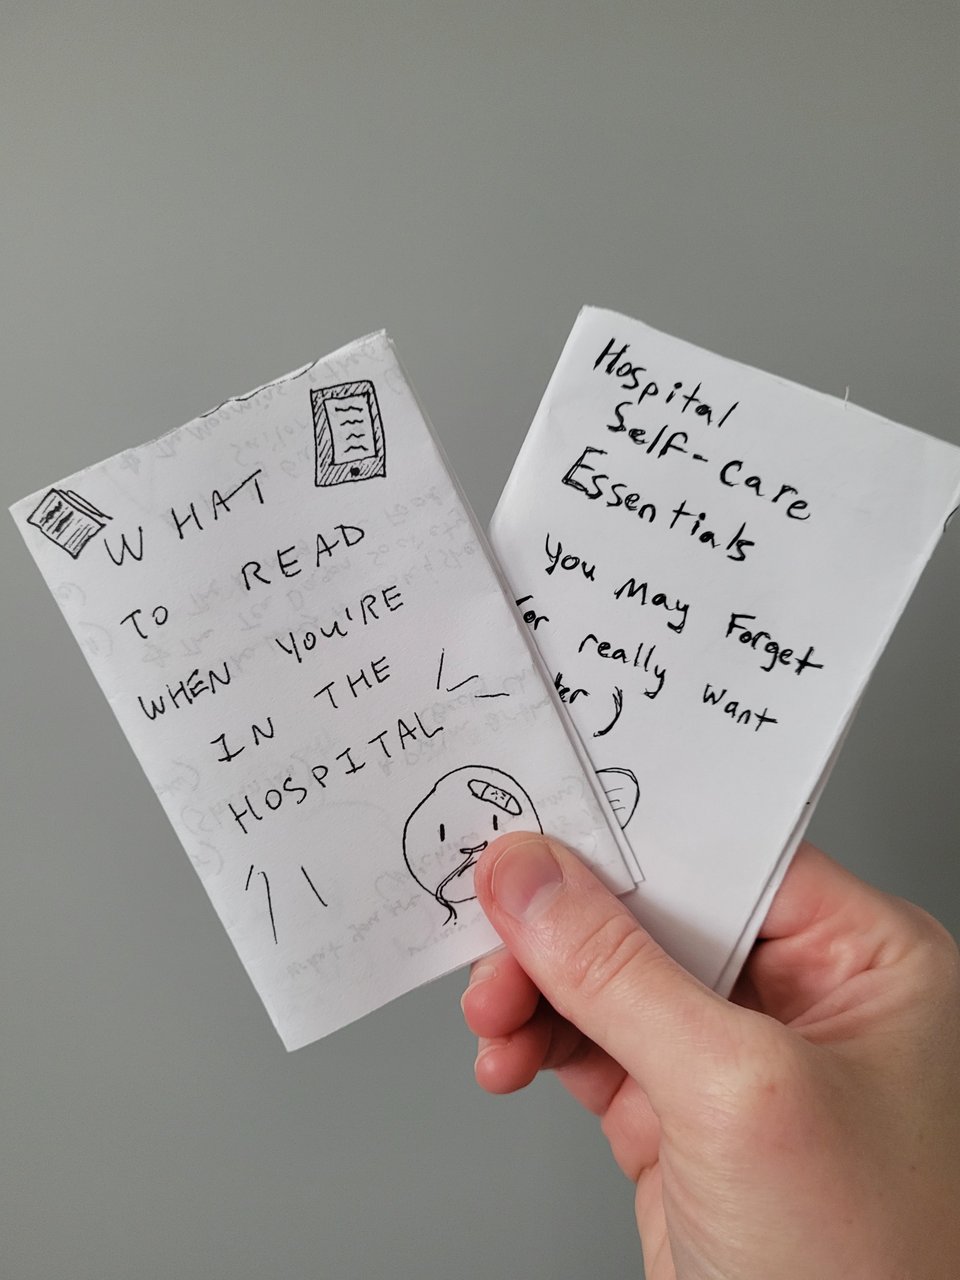 WHAT
TO READ
WHEN YOU'RE
IN THE
HOSPITAL
Hospital
Self-Care
Essentials
you May Forget
really want